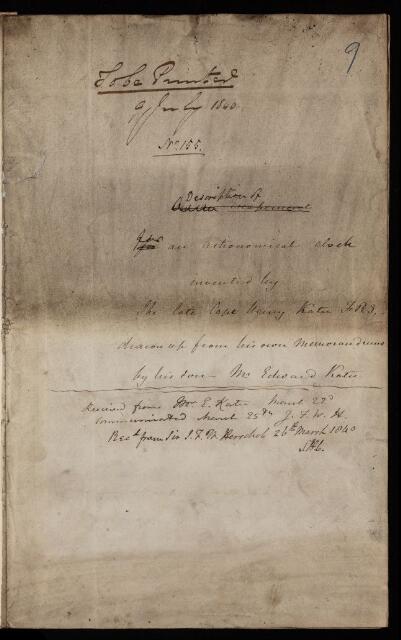 9
To be Printed
9 July 1840.
No. 155.
Description of
an escapement
for an astronomical clock
invented by
The late Capt Henry Kater F.R.S.
drawn up from his own Memorandums
by his son – Mr Edward Kater
Received from Mr. E. Kater March 22d
Communicated March 25th J. F. W. H.
Recd. from Sir J. F. W. Herschel 26th March 1840